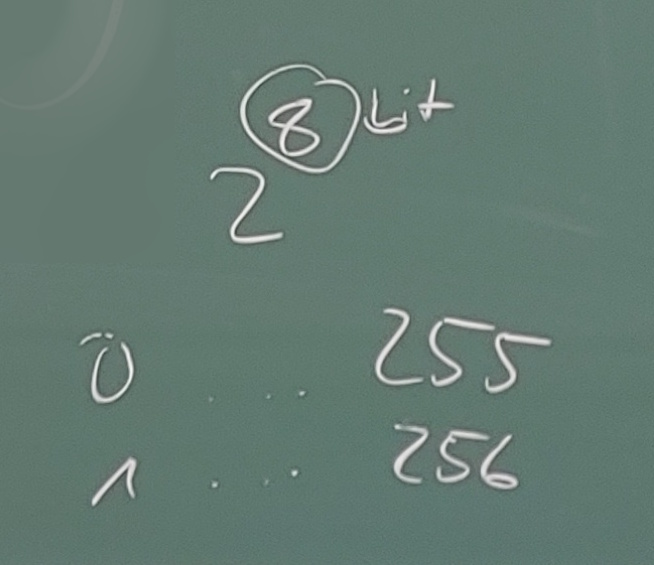 8 bit
2
0 ... 255
1 ... 256